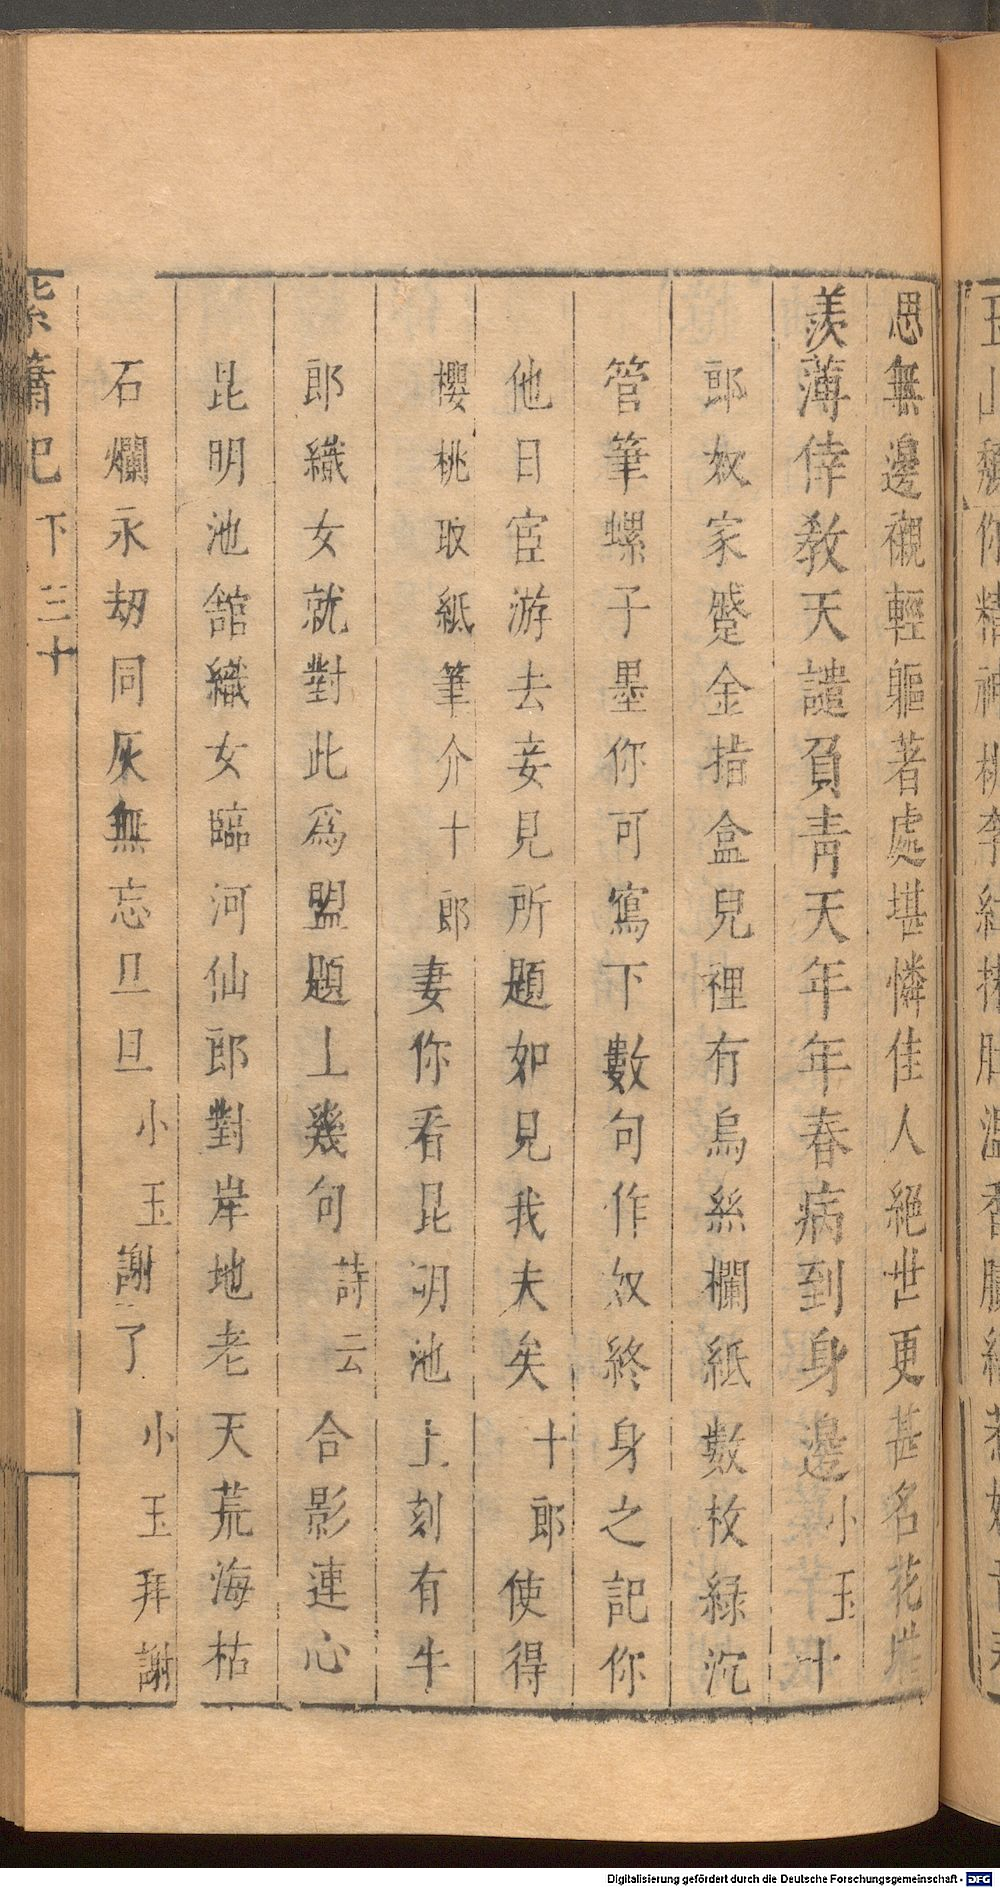 思無邊襯輕軀著處堪憐佳人絕世更甚名花堪
羨薄倖教天譴負青天年年春病到身邊小玉十
郎奴家蹙金指盒兒裡有烏絲欄紙數枚綠沉
管筆螺子墨你可寫下數句作奴終身之記你
他日宦游去妾見所題如見我夫矣十郎使得
櫻桃取紙筆介十郎妻你看昆明池上刻有牛
郎織女就對此爲盟題上幾句詩云合影連心
昆明池館織女臨河仙郎對岸地老天荒海枯
石爛永劫同灰無忘旦旦小玉謝了小玉拜謝
紫簫記 下 三十
Digitalisierung gefördert durch die Deutsche Forschungsgemeinschaft - DFG